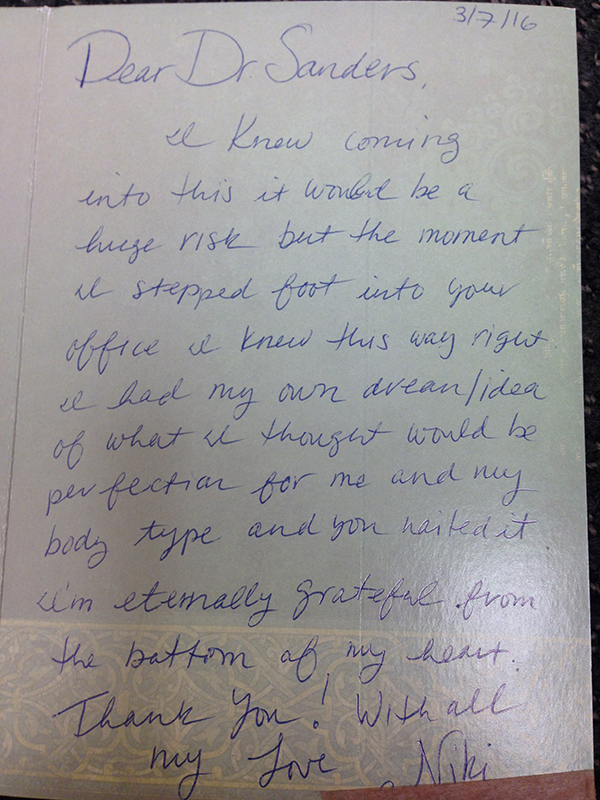 3/7/16
Dear Dr Sanders,
I Knew coming
into this it would be a
huge risk but the moment
I stepped foot into your
office I knew this way right.
I had my own dream/idea
of what I thought would be
perfection for me and my
body type and you nailed it
I'm eternally grateful from
the bottom of my heart.
Thank You! With all
my Love Niki